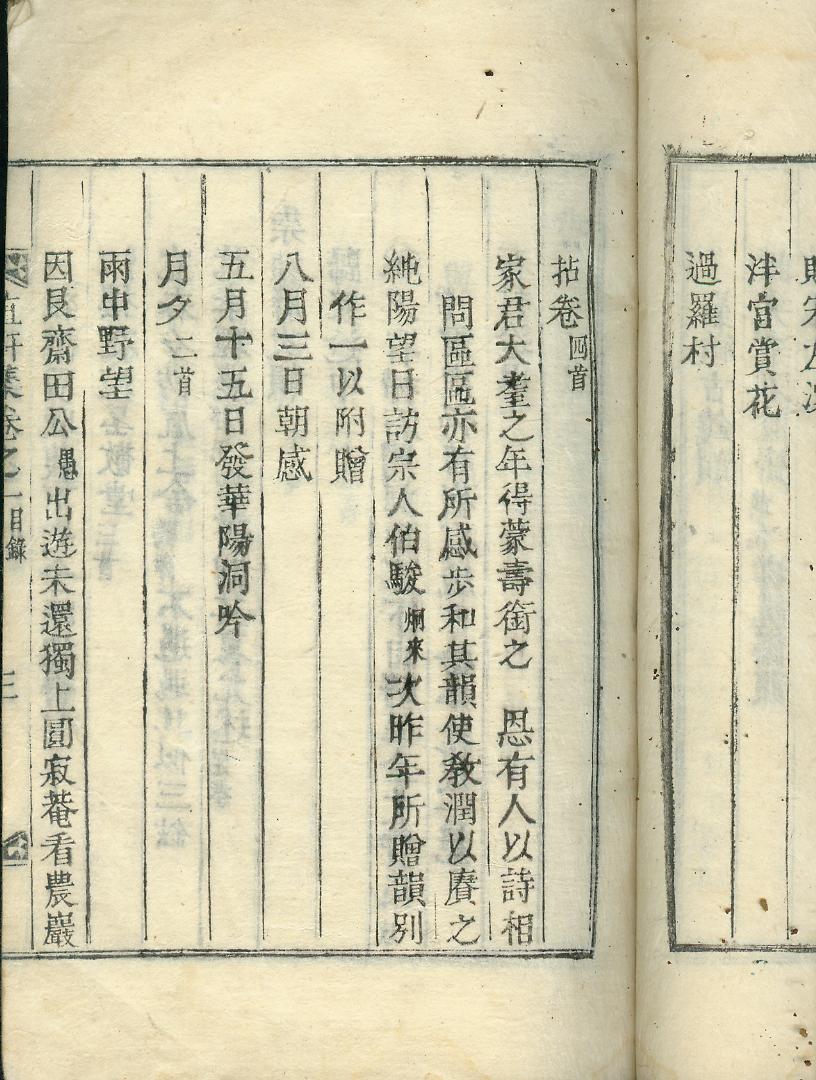 泮宮賞花
過羅村
拈卷四首
家君大耋之年得蒙壽銜之 恩有人以詩相
問區區亦有所感步和其韻使教潤以賡之
純陽望日訪宗人伯駿炯來次昨年所贈韻別
作一以附贈
八月三日朝感
五月十五日發華陽洞吟
月夕二首
雨中野望
因艮齋田公愚出遊未還獨上圓寂菴看農巖
直軒集卷之一目錄 三